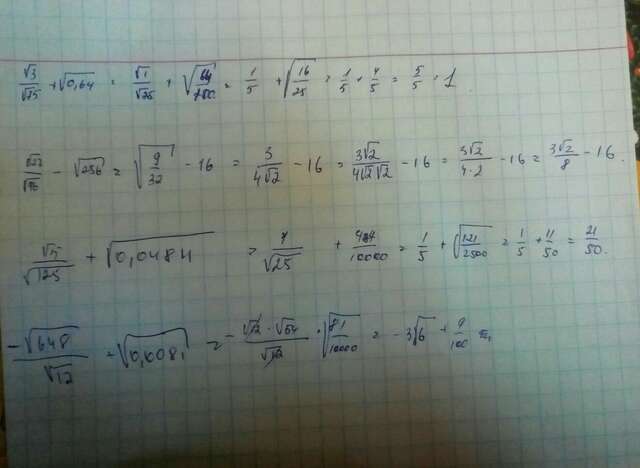 √3/√75 + √0,64 = √1/√25 + √(64/100) = 1/5 + √(16/25) = 1/5 + 4/5 = 5/5 = 1
− √256 = √(9/32) − 16 = 3/(4√2) − 16 = 3√2/(4√2√2) − 16 = 3√2/(4·2) − 16 = 3√2/8 − 16.
√5/√125 + √0,0484 = 1/√25 + 484/10000 = 1/5 + √(121/2500) = 1/5 + 11/50 = 21/50.
−√648/√12 + √0,0081 = = −3√6 + 9/100